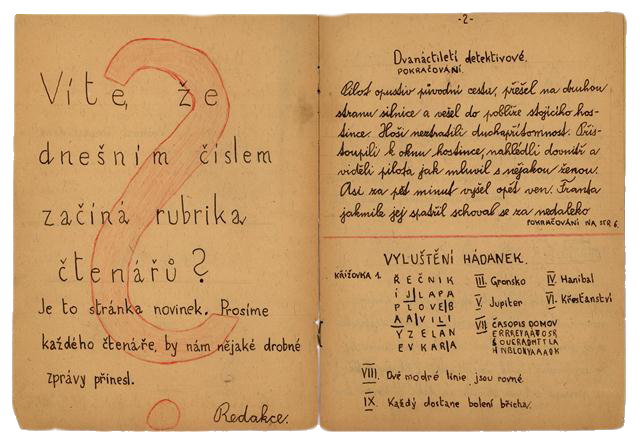 Víte, že
dnešním číslem
začíná rubrika
čtenářů?
Je to stránka novinek. Prosíme
každého čtenáře, by nám nějaké drobné
zprávy přinesl.
Redakce.
-2-
Dvanáctiletí detektivové.
POKRAČOVÁNÍ.
Pilot opustiv původní cestu, přešel na druhou
stranu silnice a vešel do poblíže stojícího hos-
tince. Hoši neztratili duchapřítomnost. Přis-
toupili k oknu hostince, nahlédli dovnitř a
viděli pilota jak mluvil s nějakou ženou.
Asi za pět minut vyšel opět ven. Franta
jakmile jej spatřil schoval se za nedaleko
POKRAČOVÁNÍ NA STR 6.
VYLUŠTĚNÍ HÁDANEK.
KŘÍŽOVKA 1.
ŘEČNÍK
IJLAPA
PLOVEB
AAVILI
YZELAN
EVKARA
III. Gronsko
IV. Hanibal
V. Jupiter
VI. Křesťanství
VII. ČASOPIS DOMOV
VIII. Dvě modré linie jsou rovné.
IX Každý dostane bolení břicha.